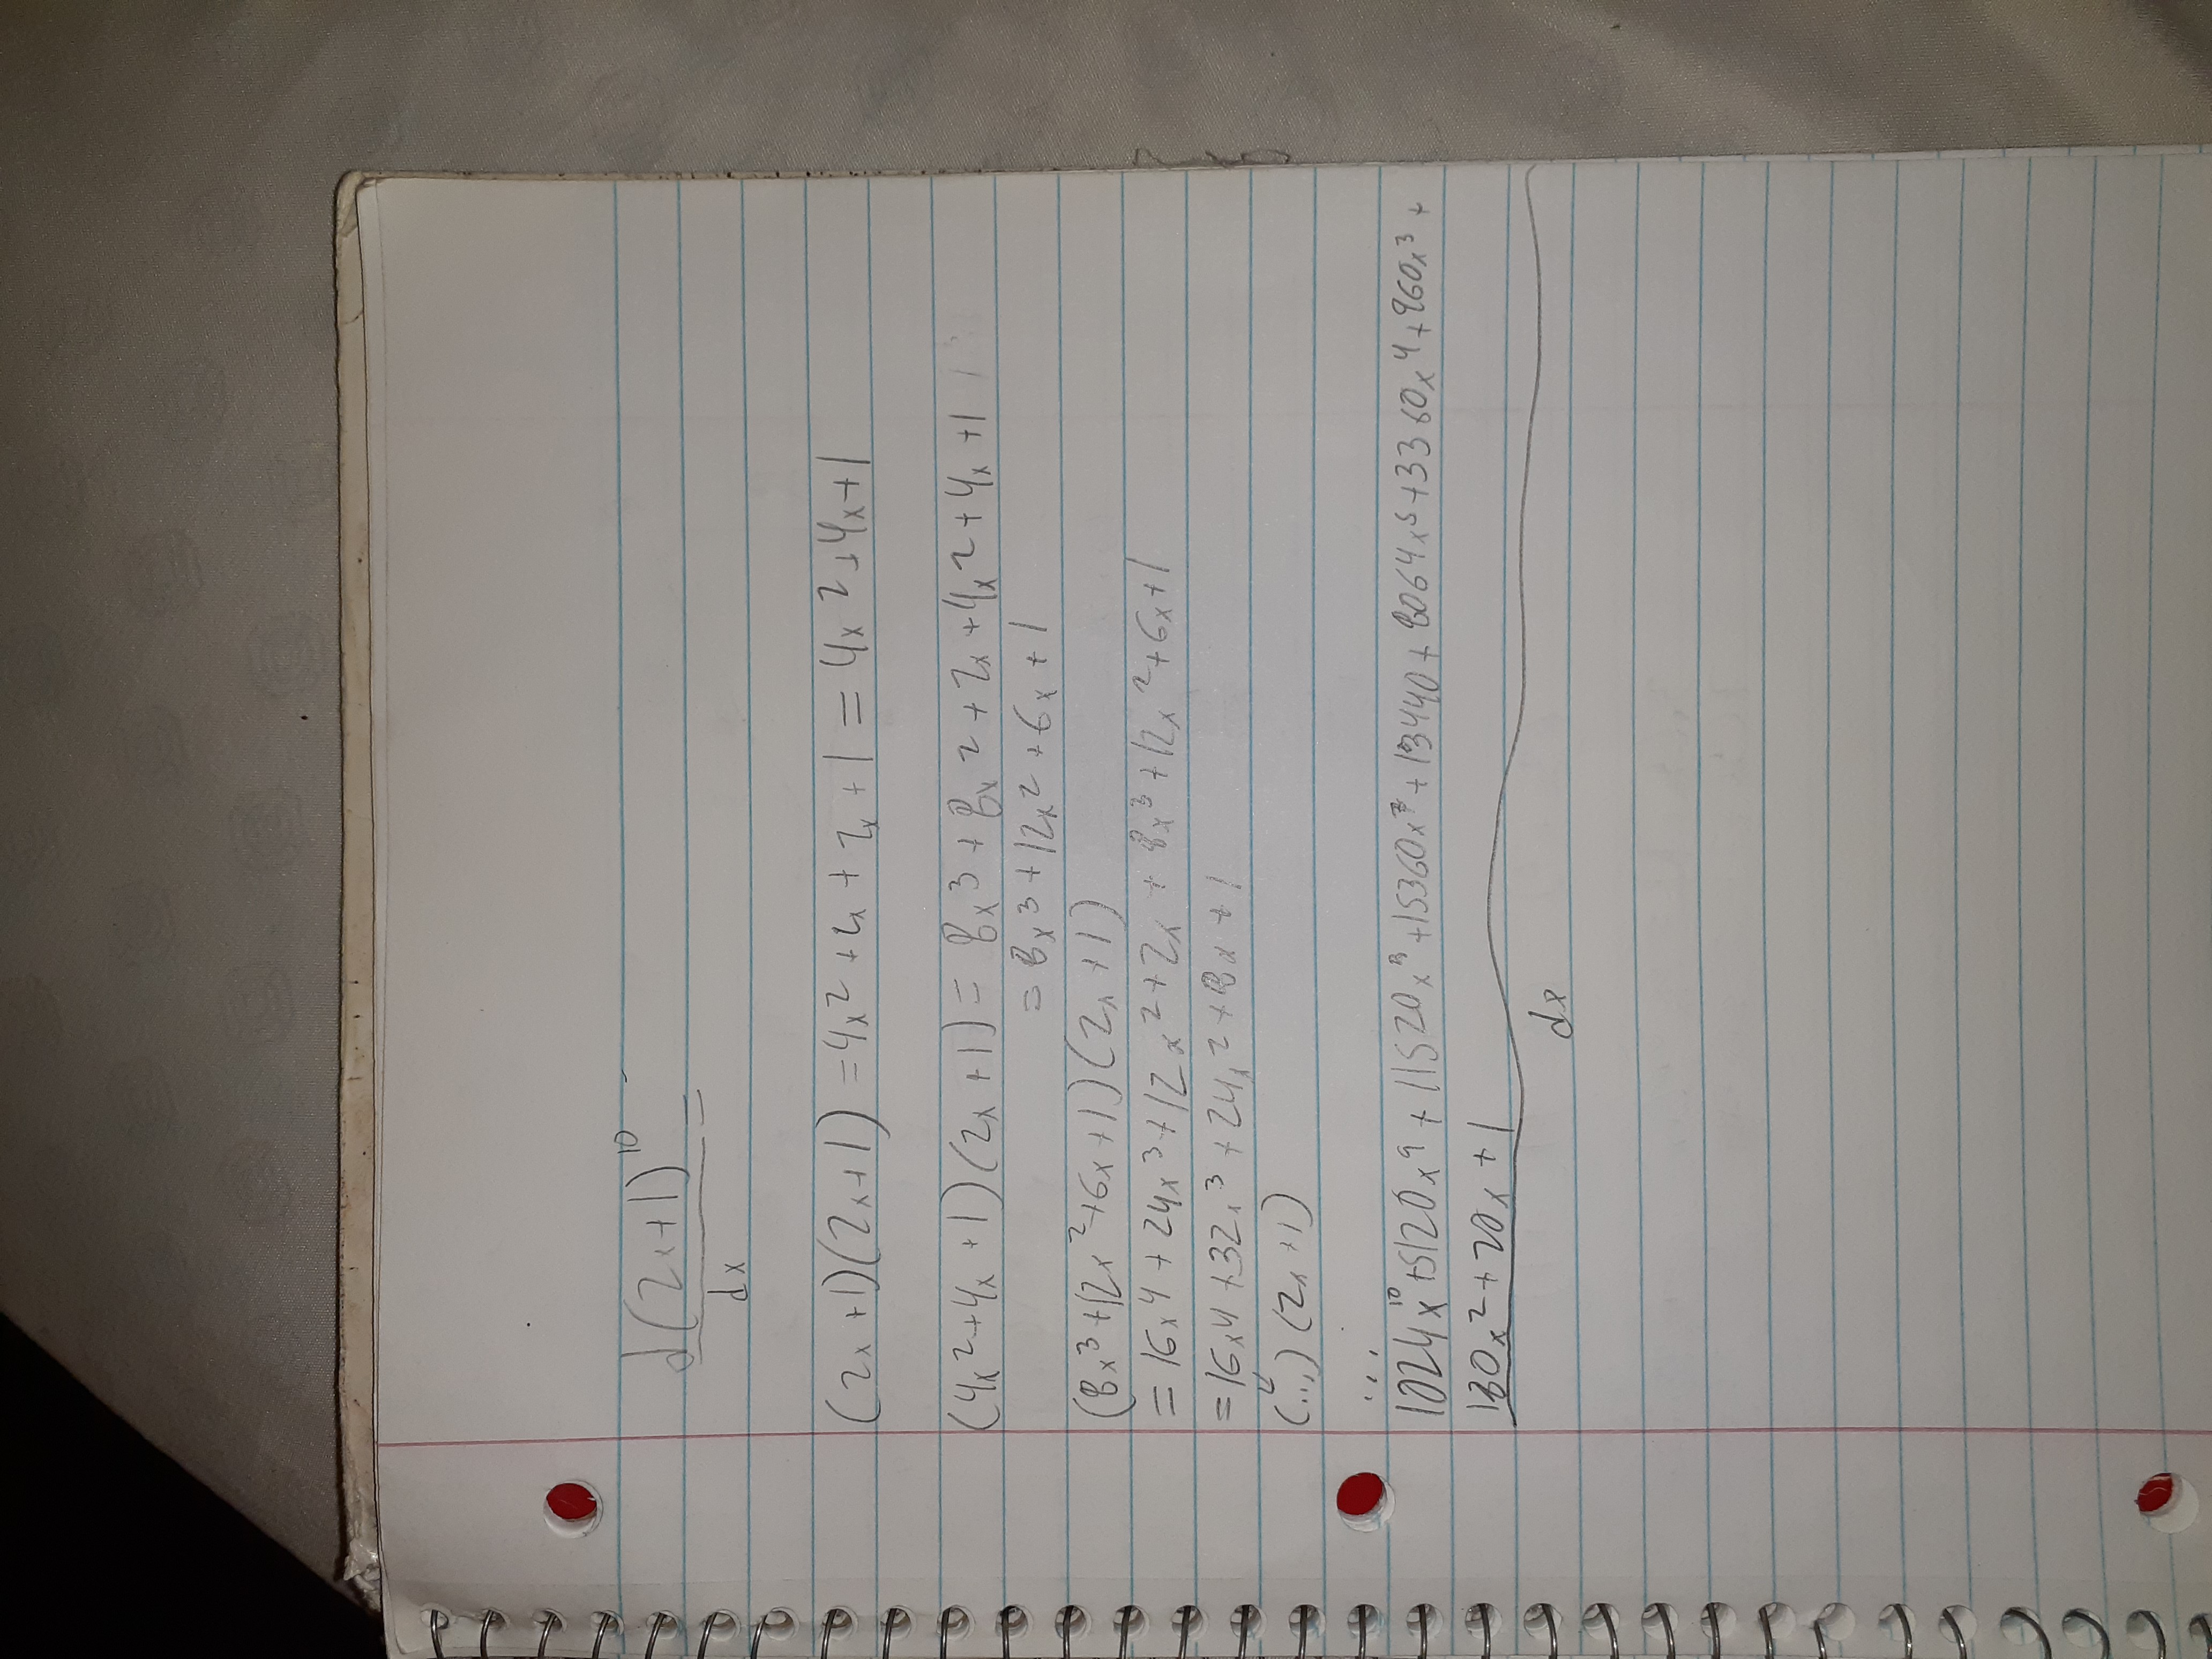 d(2x+1)^10
dx =
(2x+1)(2x+1) = 4x2 + 2x + 2x + 1 = 4x2 + 4x + 1
(4x2+4x+1)(2x+1) = 8x3 + 8x2 + 2x + 4x2 + 4x + 1
= 8x3 + 12x2 + 6x + 1
(8x3+12x2+6x+1)(2x+1)
= 16x4 + 24x3 + 12x2 + 2x + 8x3 + 12x2 + 6x + 1
= 16x4 + 32x3 + 24x2 + 8x + 1
(...)(2x+1)
...
1024x^10 + 5120x9 + 11520x8 + 15360x7 + 13440 + 8064x5 + 3360x4 + 960x3 +
130x2 + 20x + 1
dx